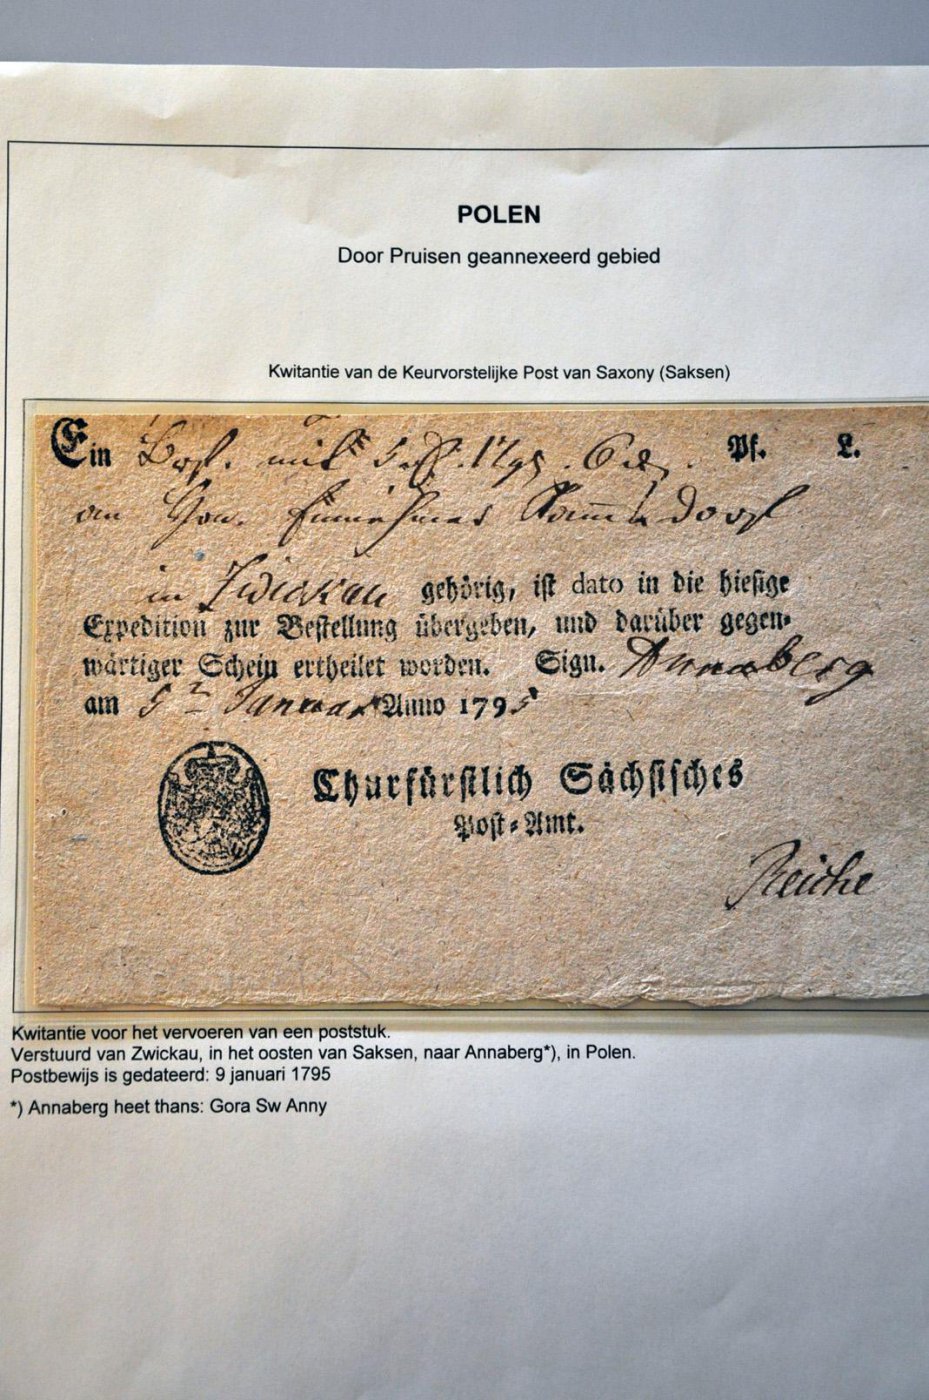 POLEN
Door Pruisen geannexeerd gebied
Kwitantie van de Keurvorstelijke Post van Saxony (Saksen)
Ein mit Pf. L.
an
in Zwickau gehörig, ist dato in die hiesige
Expedition zur Bestellung übergeben, und darüber gegen-
wärtiger Schein ertheilet worden. Sign. Annaberg
am Januar Anno 1795
Churfürstlich Sächsisches
Post-Amt.
Reiche
Kwitantie voor het vervoeren van een poststuk.
Verstuurd van Zwickau, in het oosten van Saksen, naar Annaberg*), in Polen.
Postbewijs is gedateerd: 9 januari 1795
*) Annaberg heet thans: Gora Sw Anny